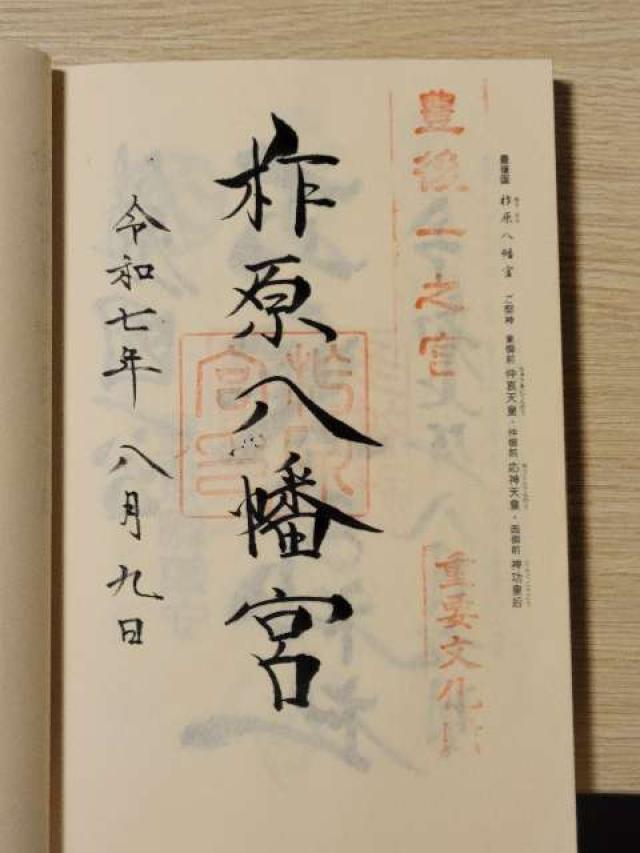 豊後国 柞原八幡宮 ご祭神 東御前 仲哀天皇・中御前 応神天皇・西御前 神功皇后
豊後一之宮
重要文化
柞原八幡宮
令和七年 八月九日